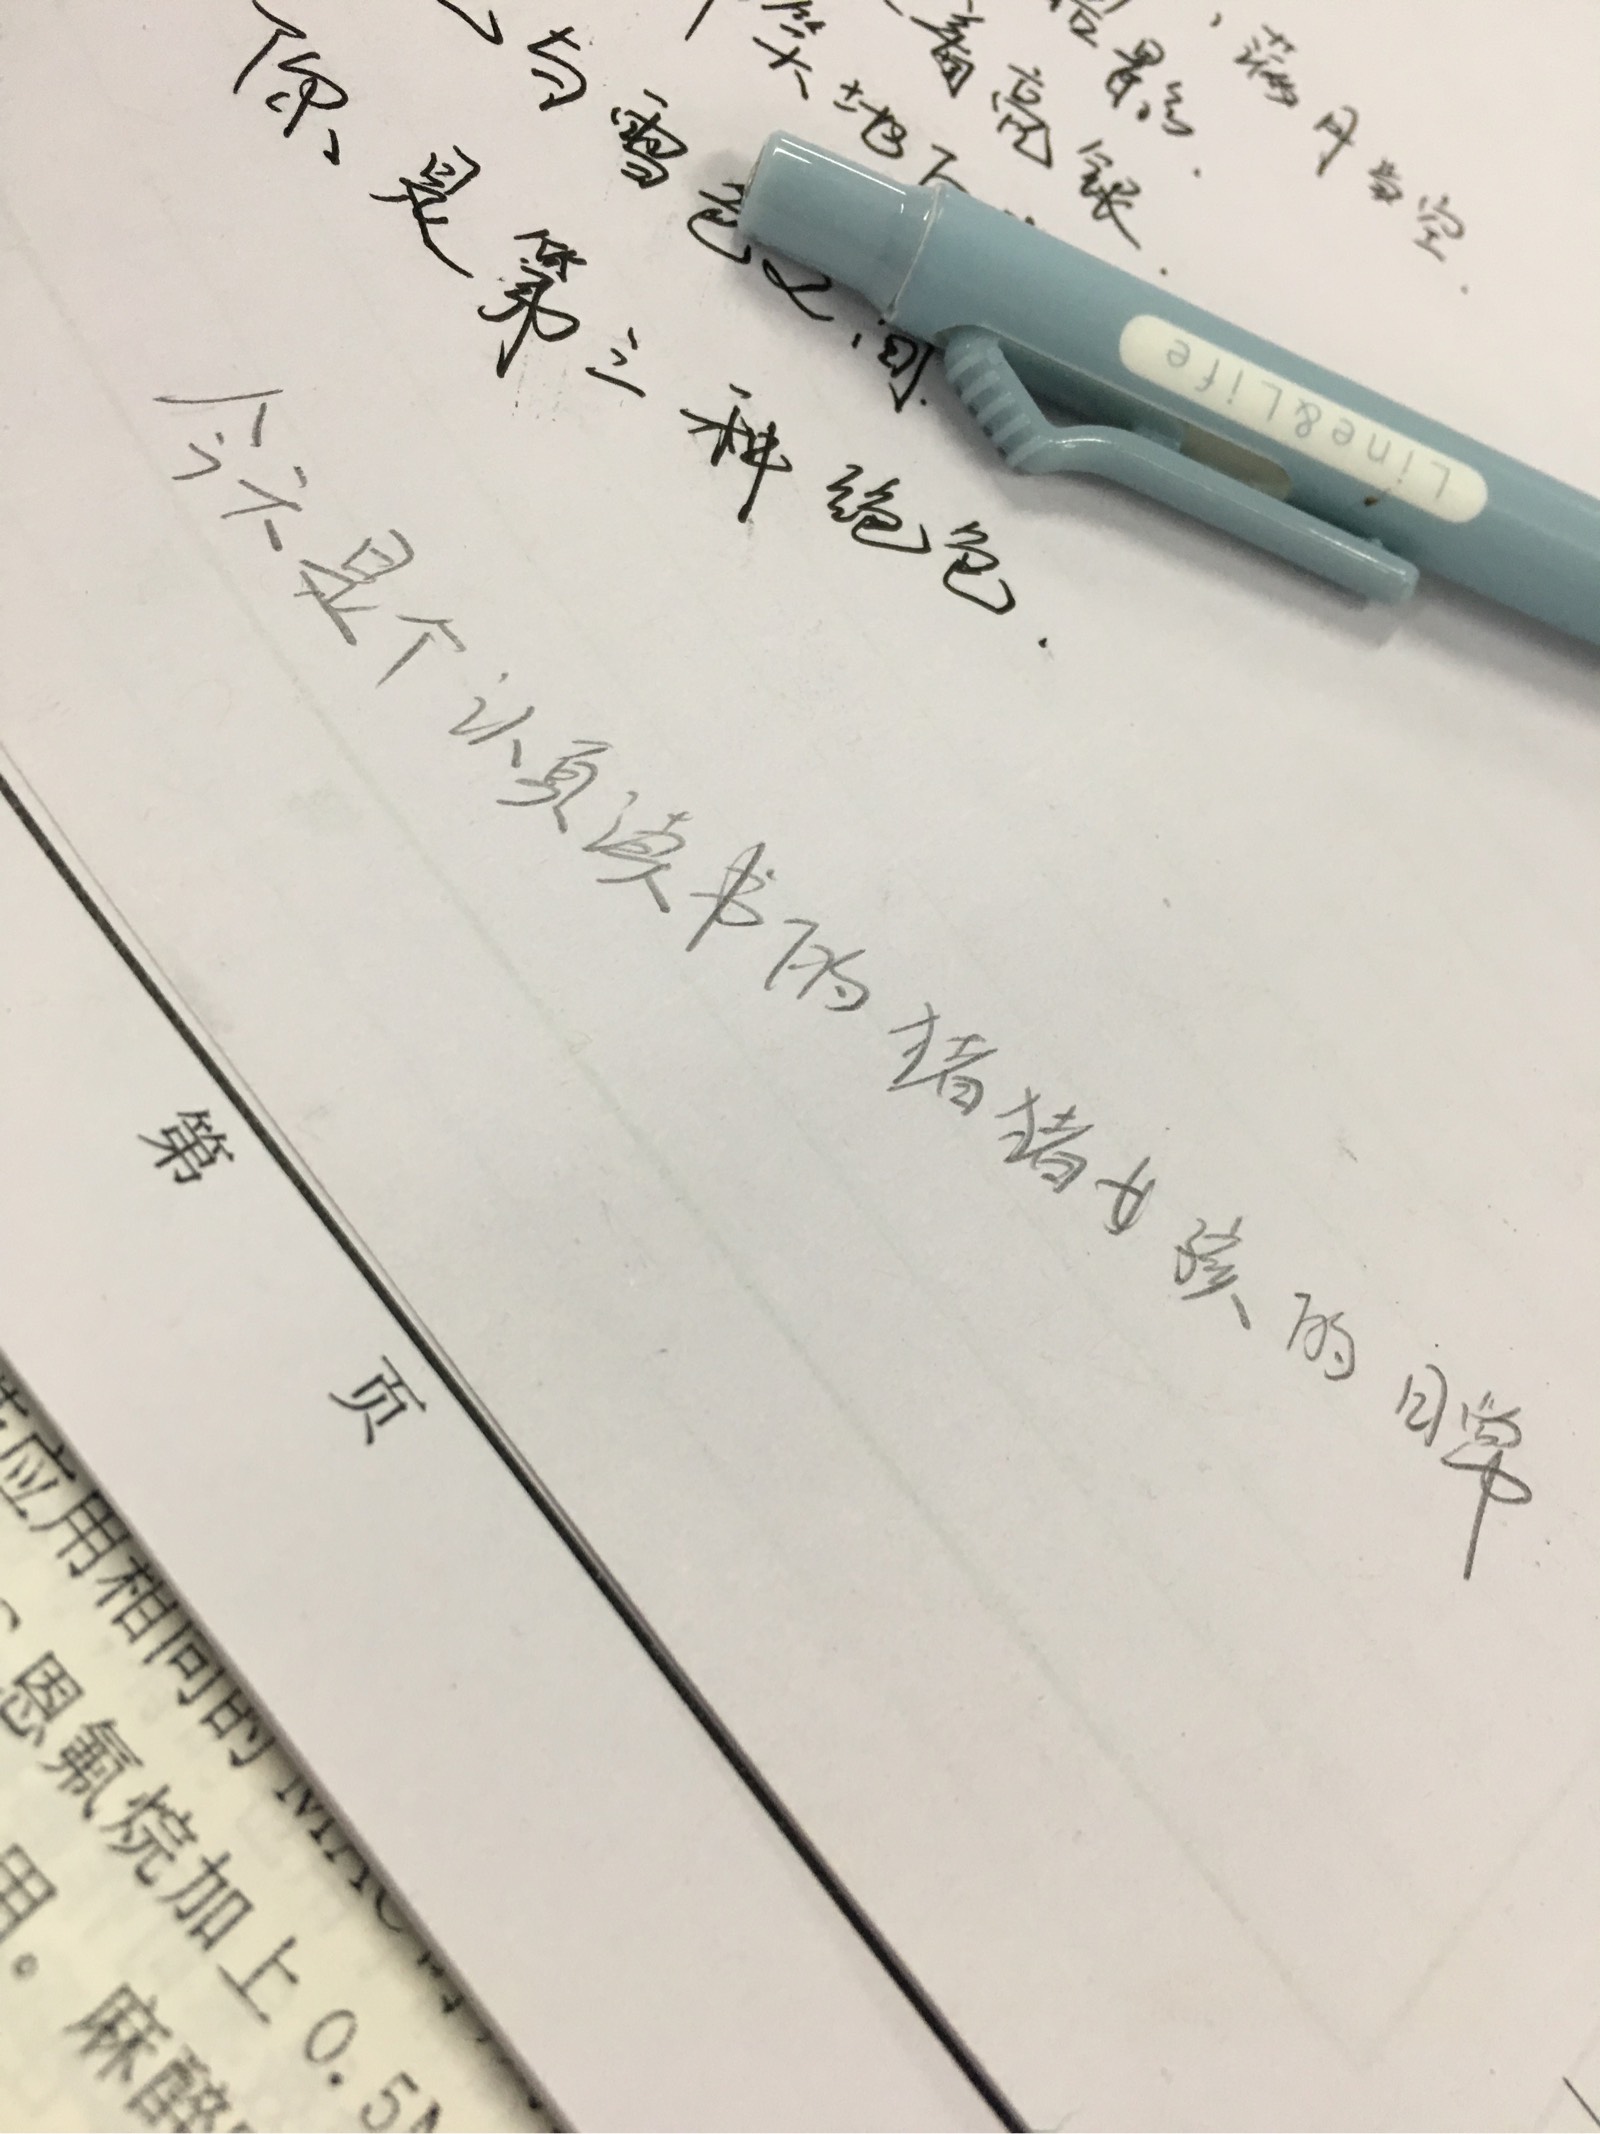 满月当空.
着高跟.
笑地
与雪色之间.
你,是第三种绝色.
今天是个认真读书的猪猪女孩的日常
Line&Life
第 页
应用相同的MAC
恩氟烷加上0.5M
用。麻醉